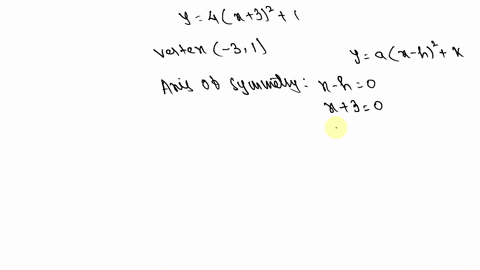 y = 4(x+3)² + 1
vertex (-3, 1)
y = a(x-h)² + k
Axis of symmetry: x-h = 0
x+3 = 0